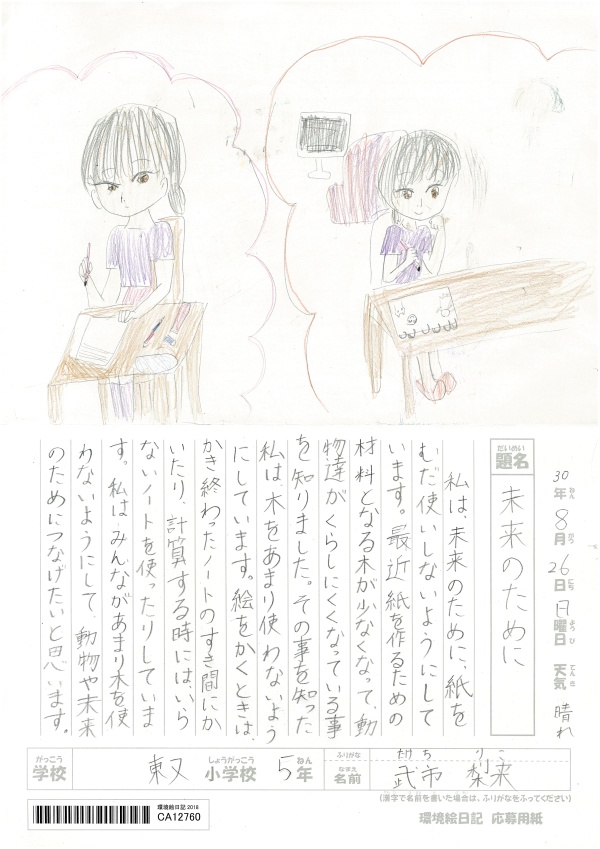 30年 8月 26日 日曜日 天気 晴れ
ねん がつ にち よう び てん き
だいめい
題名
未来のために
私は、未来のために、紙を
むだ使いしないようにして
います。最近紙を作るための
材料となる木が少なくなって、動
物達がくらしにくくなっている事
を知りました。その事を知った
私は木をあまり使わないよう
にしています。絵をかくときは、
かき終わったノートのすき間にか
いたり、計算する時には、いら
ないノートを使ったりしていま
す。私は、みんながあまり木を使
わないようにして、動物や未来
のためにつなげたいと思います。
がっこう しょうがっこう ねん
学校 東又 小学校 5年
ふりがな たけ ち り こ
なまえ
名前 武市 梨来
(漢字で名前を書いた場合は、ふりがなをふってください)
環境絵日記 2018
CA12760
環境絵日記 応募用紙